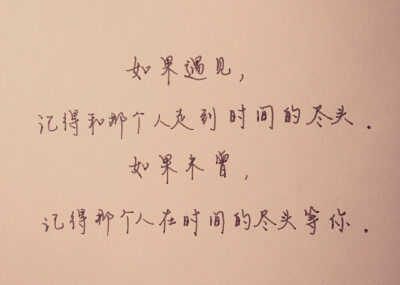 如果遇见，
记得和那个人走到时间的尽头．
如果未曾，
记得那个人在时间的尽头等你．